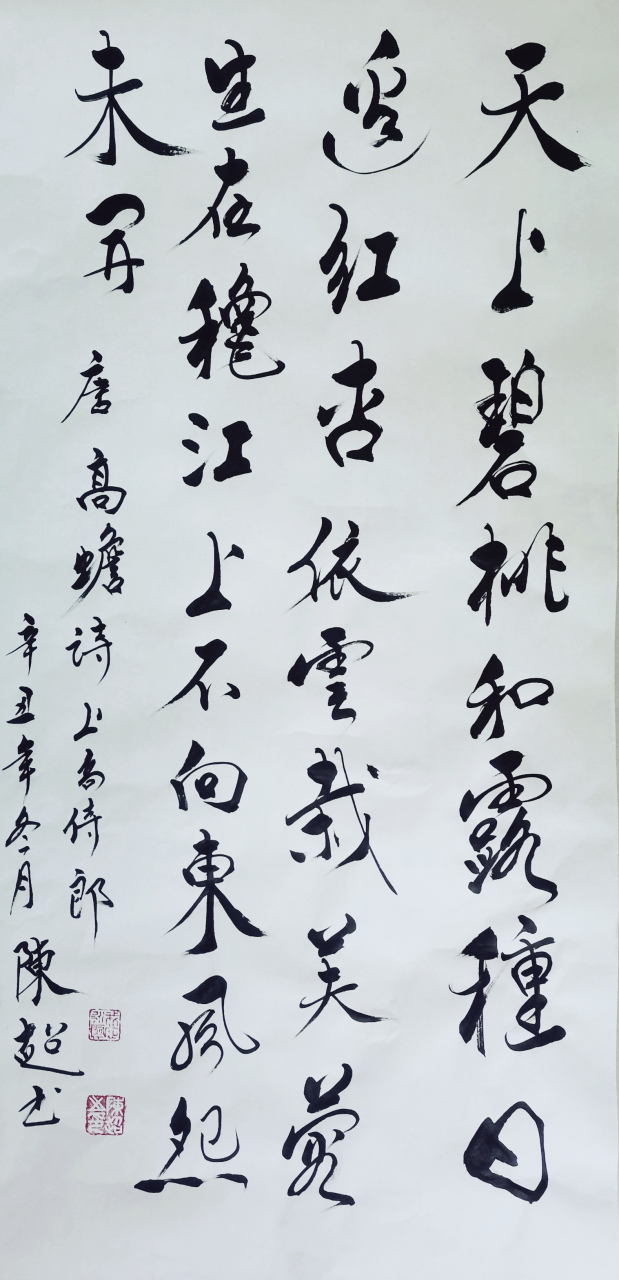 天上碧桃和露種日
邊紅杏依雲栽芙蓉
生在穐江上不向東風怨
未開 唐高蟾詩上高侍郎
辛丑年冬月陳超书